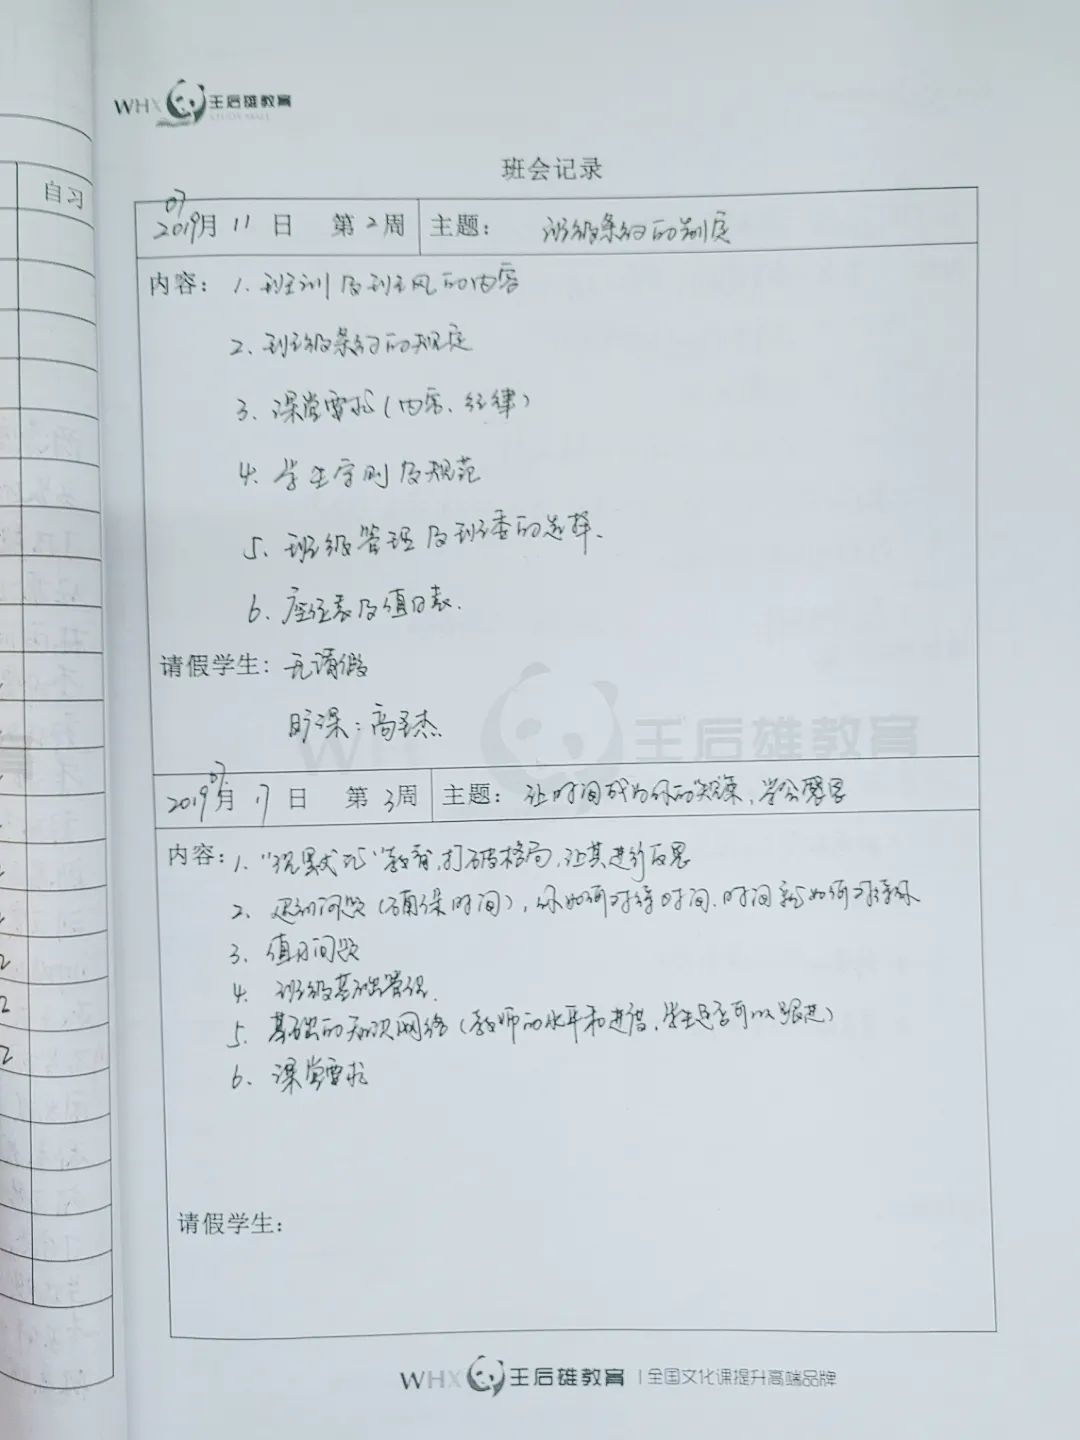 WHX 王后雄教育
STUDY MALL
自习
班会记录
07
2019月 11 日 第 2 周 主题: 班级条约的制定
内容: 1. 班训及班风的内容
2. 班级条约的规定
3. 课堂要求(内容、纪律)
4. 学生守则及规范
5. 班级管理及班委的选择.
6. 座位表及值日表.
请假学生: 无请假
旷课: 高杰
WHX 王后雄教育
07
2019月 17 日 第 3 周 主题: 让时间成为你的, 学会
内容: 1. "沉默式"教育, 打破格局, 让其进行反思
2. 迟到问题(确保时间), 你如何对待时间, 时间就如何对待你
3. 值日问题
4. 班级基础管理.
5. 基础的知识网络(教师的水平和进度, 学生是否可以跟进)
6. 课堂要求
请假学生:
WHX 王后雄教育 | 全国文化课提升高端品牌